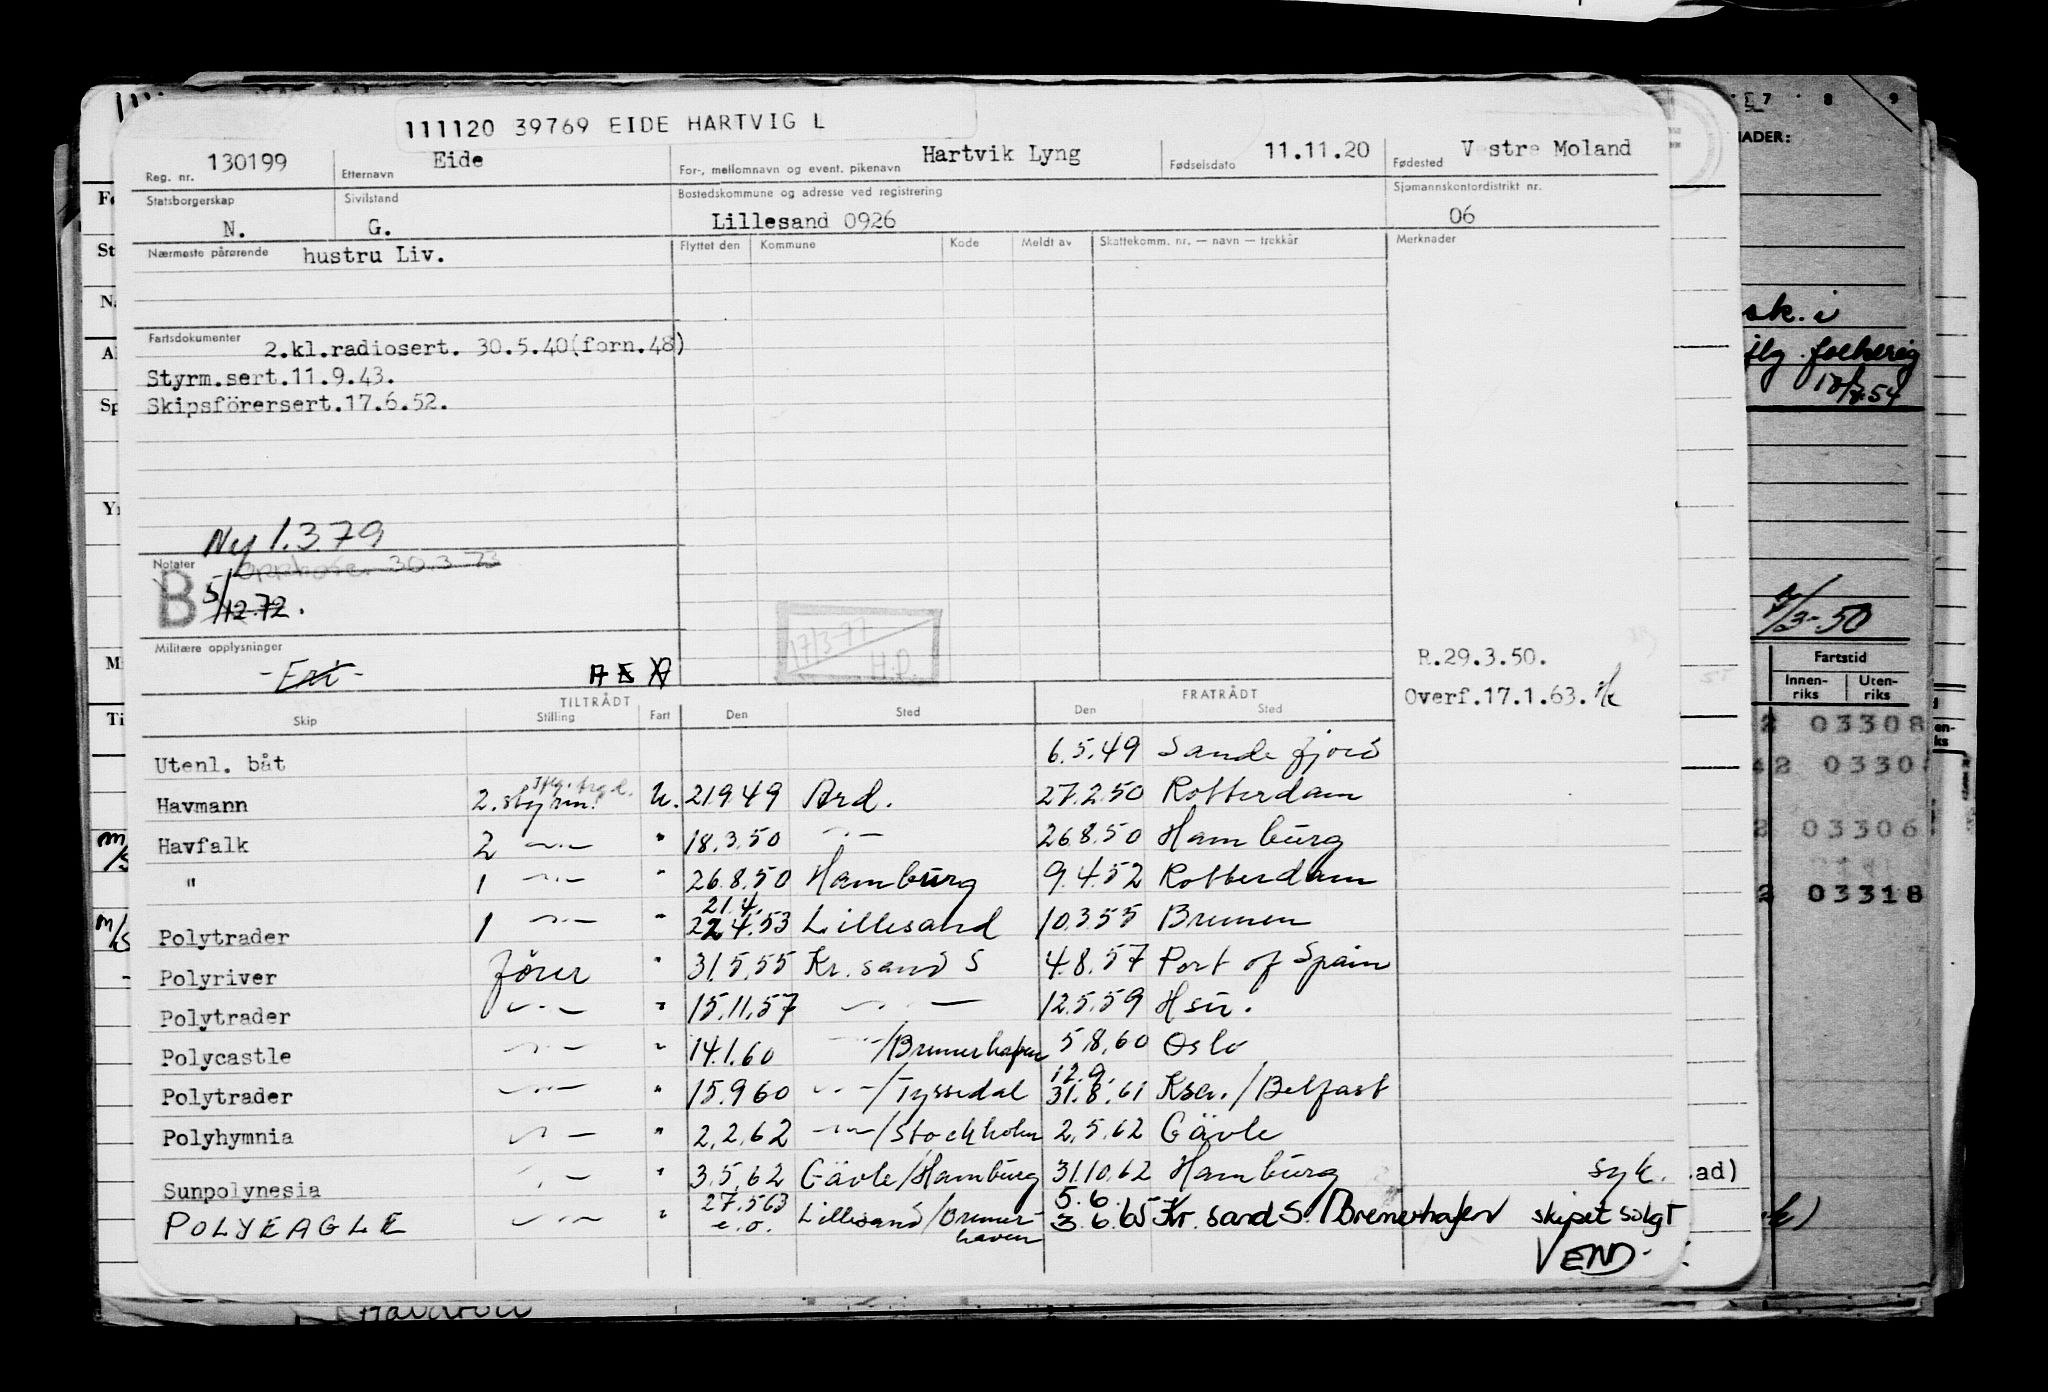 111120 39769 EIDE HARTVIG L
Reg. nr. 130199 Etternavn Eide For-, mellomnavn og event. pikenavn Hartvik Lyng Fødselsdato 11.11.20 Fødested Vestre Moland
Statsborgerskap N. Sivilstand G. Bostedskommune og adresse ved registrering Lillesand 0926 Sjømannskontordistrikt nr. 06
Nærmeste pårørende hustru Liv. Flyttet den Kommune Kode Meldt av Skattekomm. nr. — navn — trekkår Merknader
Fartsdokumenter 2.kl.radiosert. 30.5.40(forn.48)
Styrm.sert.11.9.43.
Skipsförersert.17.6.52.
Ny 1.3.79
Notater 30.3.73
B 5/12.72.
17/3-77
Militære opplysninger
R.29.3.50.
Overf.17.1.63.
TILTRÅDT FRATRÅDT
Skip Stilling Fart Den Sted Den Sted
Utenl. båt 6.5.49 Sandefjord
Havmann 2. styrm. U. 21949 Ard. 27.2.50 Rotterdam
Havfalk 2 —·— " 18.3.50 —·— 26.8.50 Hamburg
" 1 —·— " 26.8.50 Hamburg 9.4.52 Rotterdam
21.4.
Polytrader 1 —·— " 22.4.53 Lillesand 10.3.55 Bremen
Polyriver förer " 31.5.55 Kr.sand S 4.8.57 Port of Spain
Polytrader —·— " 15.11.57 —·— 12.5.59 Hsu.
Polycastle —·— " 14.1.60 —·—/Bremerhafen 5.8.60 Oslo
12.9.
Polytrader —·— " 15.9.60 —·—/Tyssedal 31.8.61 /Belfast
Polyhymnia —·— " 2.2.62 —·—/Stockholm 2.5.62 Gävle
Sunpolynesia —·— " 3.5.62 Gävle/Hamburg 31.10.62 Hamburg syk.
POLYEAGLE —·— " 27.5.63 e.o. Lillesand/Bremerhaven 5.6. 3.6.65 Kr.sand S./Bremerhafen skipet solgt
VEND.
7 8 9
NADER:
sk. i
3-50
Fartstid
Innenriks Utenriks
03308
42 0330
03306
03318
ad)